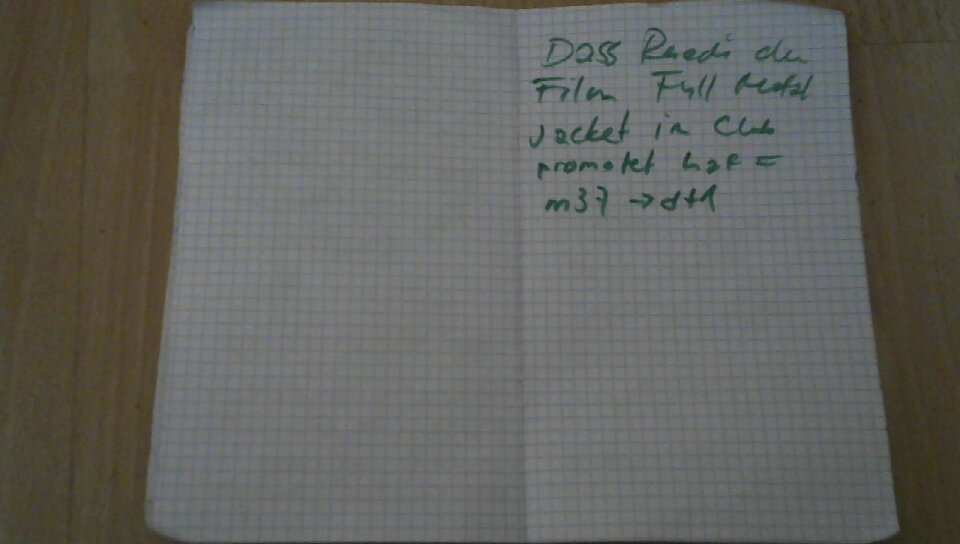 Dass Ruedi den
Film Full Metal
Jacket im Club
promotet hat =
m37 → d+1